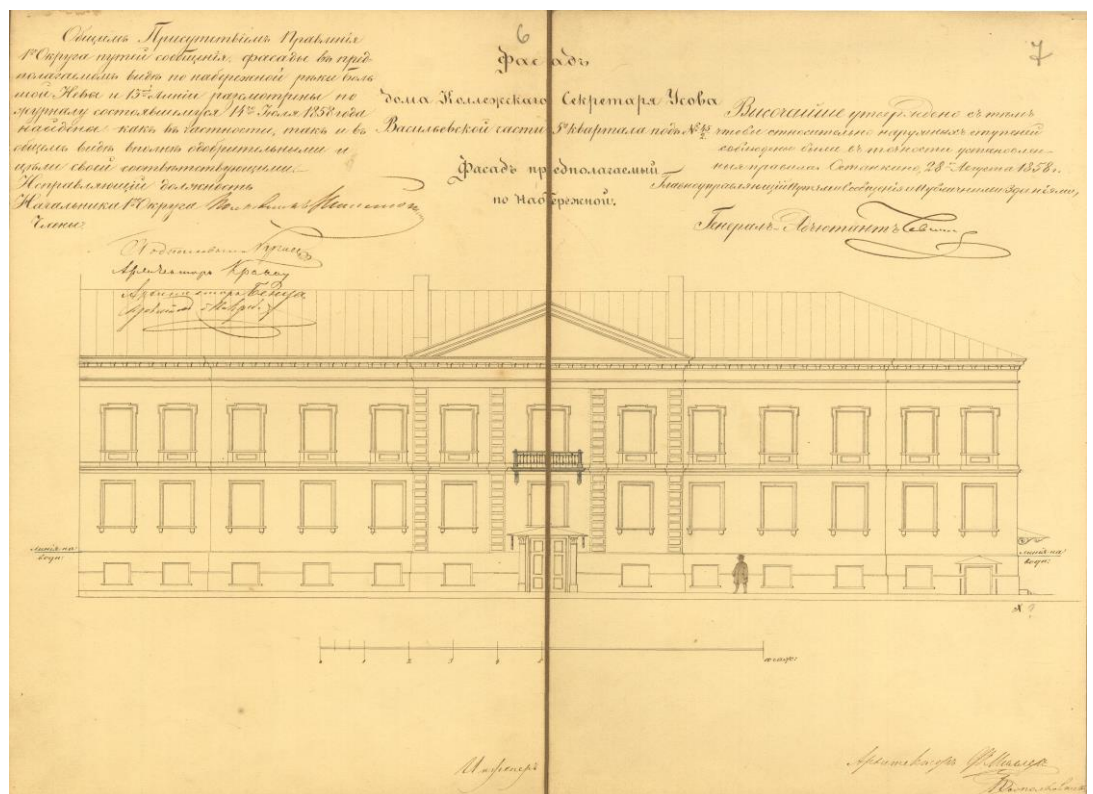 6
7
Общимъ Присутствіемъ Правленія
1го Округа путей сообщенія, фасады въ пред-
полагаемомъ видѣ по набережной рѣки боль-
шой Невы и 13й линіи разсмотрены по
журналу состоявшемуся 14го Іюля 1858 года
найдены какъ въ частности, такъ и въ
общемъ видѣ вполнѣ одобрительными и
цѣли своей соотвѣтствующими.
Исправляющій должность
Начальника 1го Округа
Члены:
Архитекторъ
Архитекторъ
Фасадъ
дома Коллежскаго Секретаря Усова
Васильевской части 5го квартала подъ №
Фасадъ предполагаемый
по Набережной.
Высочайше утверждено съ тѣмъ
чтобы относительно наружныхъ ступеней
соблюдены были въ точности установлен-
ныя правила. Останкино, 28го Августа 1858 г.
Главноуправляющій Путями сообщенія и Публичными Зданіями,
Генералъ-Адъютантъ
линія на-
водн:
линія на-
водн:
Инженеръ
Архитекторъ
Подполковникъ